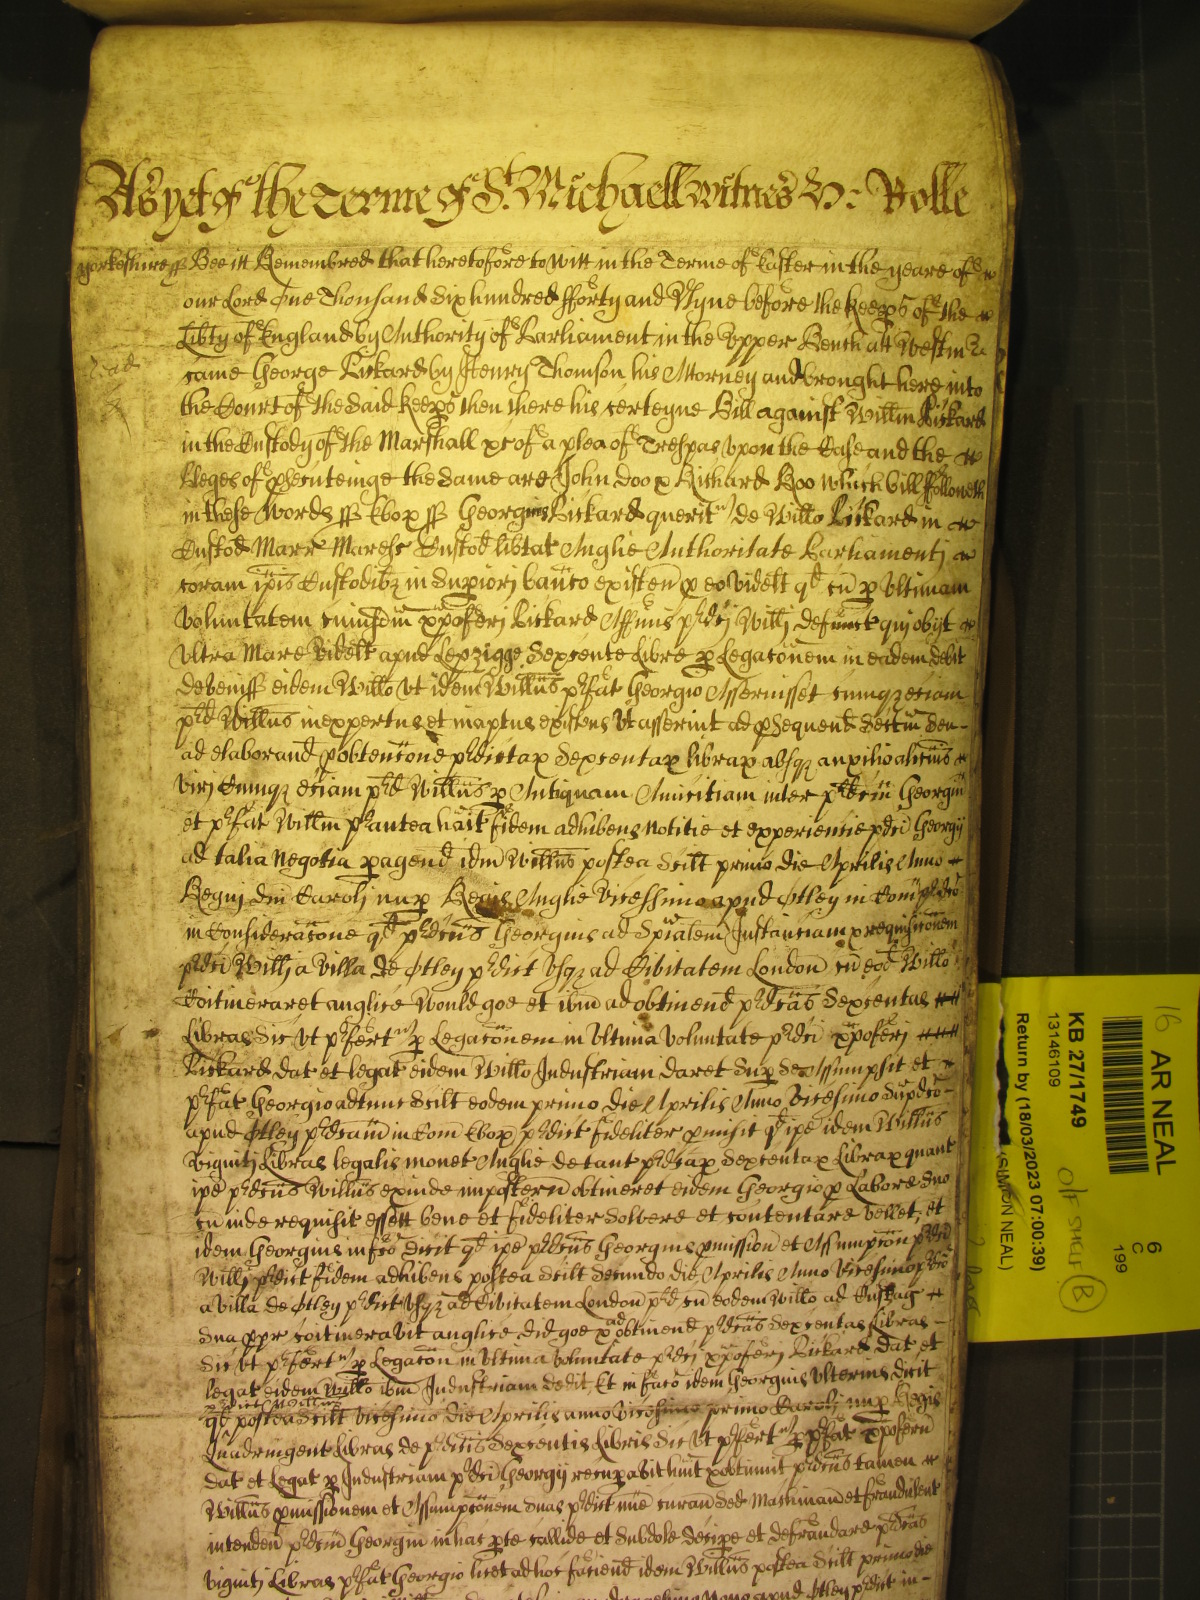 As yet of the Terme of St. Michaell witnes H: Rolle
Yorkeshire ss Bee itt Remembred that heretofore to witt in the Terme of Easter in the yeare of
our Lord One Thousand Six hundred fforty and Nyne before the Keeps of the
Libty of England by Authority of Parliament in the Upper Bench att Westm
came George Rickard by Henry Thomson his Attorney and brought here into
the Court of the said Keeps then there his certeyne Bill against Willm Rickard
in the Custody of the Marshall &c of a plea of Trespas upon the Case and the
pleges of psecuteinge the same are John Doo & Richard Roo which bill followeth
in these words ss Ebox ss Georgius Rickard querit de Willo Rickard in
Custod Marr Maresc Custod libtat Anglie Authoritate Parliamenti
coram ipis Custodibz in Supiori banco existen p eo videlt qd cu p ultimam
voluntatem cuiusdm xpoferi Rickard Affinis pdci Willi defunct qui obijt
ultra Mare videlt apud Leipzigge Sexcente Libre p Legacoem in eadem debit
deveniss eidem Willo ut idem Willus pfat Georgio Asseruisset cumqz eciam
pd Willus inexpertus et inaptus existens ut asseruit ad psequend sectm seu
ad elaborand p obtencone pdictax Sexcentax librax absqz auxilio alicuius
viri Cumqz eciam pd Willus p Antiquam Amicitiam inter pdcm Georgiu
et pfat Willm p antea hait fidem adhibens Notitie et experientie pdci Georgij
ad talia Negotia pagend idm Willus postea scilt primo die Aprilis Anno
Regni dni Caroli nup Regis Anglie vicessimo apud Otley in Com pdco
in Consideracone qd pdcus Georgius ad Spialem Instanciam & requisicoem
pdci Willi a villa de Otley pdict usqz ad Civitatem London cu eod Willo
Coitineraret anglice Would goe et ibm ad obtinend pdcas Sexcentas
Libras sic ut pfert p Legacoem in ultima voluntate pdci xpoferi
Rickard dat et legat eidem Willo Industriam daret Sup se Assumpsit et
pfat Georgio adtunc scilt eodem primo die Aprilis Anno vicesimo supdco
apud Otley pdcam in Com Ebox pdict fideliter pmisit qd ipe idem Willus
viginti Libras legalis monet Anglie de tant pdcax Sexcentax Librax quant
ipe pdcus Willus exinde impostern obtineret eidem Georgio p Labore suo
cu inde requisit essett bene et fideliter Solvere et contentare vellet, et
idem Georgius in fco dicit qd ipe pdcus Georgius pmission et Assumpcon pdci
Willi pdict fidem adhibens postea scilt Secundo die Aprilis Anno vicesimo pdco
a villa de Otley pdict usqz ad Civitatem London pd cu eodem Willo ad Custag
sua ppr coitineravit anglice did goe & ad obtinend pdcas Sexcentas Libras
sic ut pfert p Legacon in ultima voluntate pdci xpoferi Rickard dat et
legat eidem Willo ibm Industriam dedit Et in facto idem Georgius ulterius dicit
pdict Willus
qd postea scilt vicesimo die Aprilis anno vicesimo primo Caroli nup Regis
Quadringent Libras de pdcis Sexcentis Libris sic ut pfert p pfat xpoferu
dat et Legat p Industriam pdci Georgij recupavit huit & obtinuit pdcus tamen
Willus pmissionem et Assumpcoem suas pdict mie curan sed Machinan et fraudulent
intenden pdcm Georgiu in hac pte callide et subdole decipe et defraudare pdcas
viginti Libras pfat Georgio licet ad hoc faciend idem Willus postea scilt primo die
apud Otley pdict in
16 AR NEAL
6
C
199
KB 27/1749
13146109
O/F SHELF B
Return by (18/03/2023 07:00:39)
(SIMON NEAL)